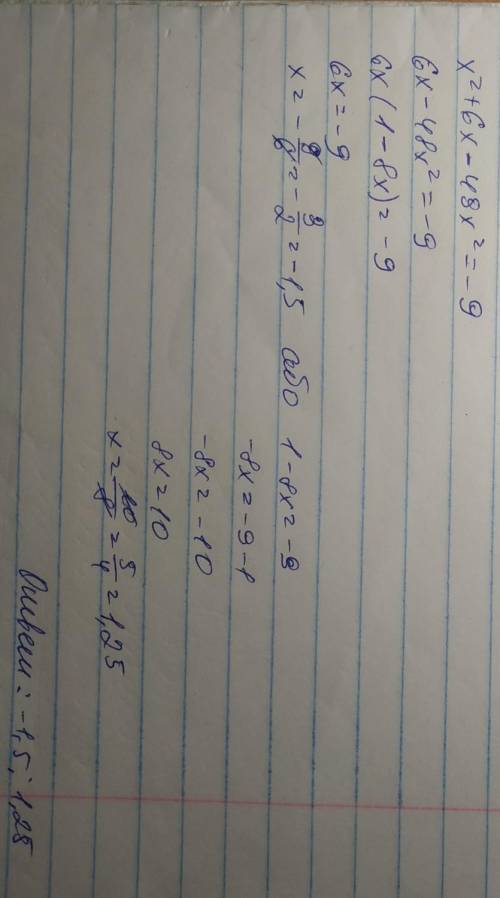 x²+6x-48x²=-9
6x-48x²=-9
6x(1-8x)=-9
6x=-9
x=-9/6=-3/2=-1,5 або 1-8x=-9
-8x=-9-1
-8x=-10
8x=10
x=10/8=5/4=1,25
Ответ: -1,5; 1,25